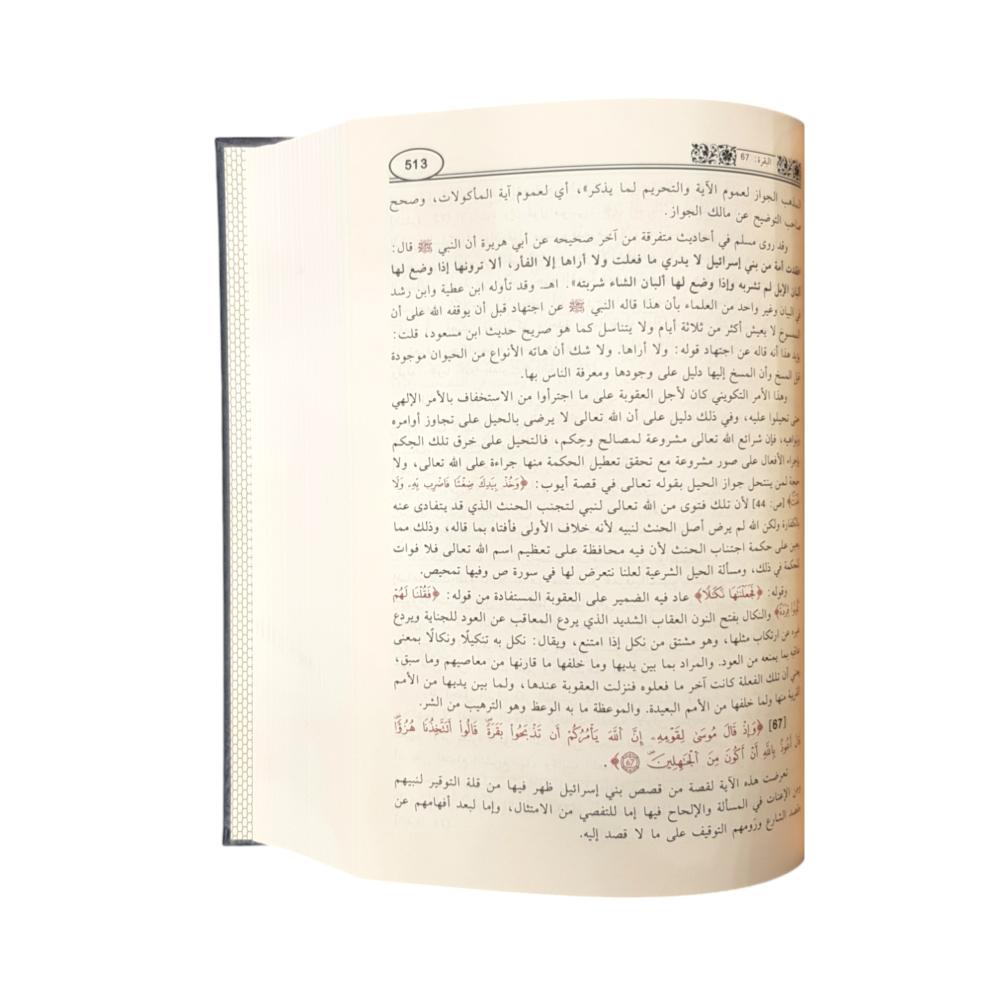 513
البقرة: 67
الجواز لعموم الآية والتحريم لما يذكر»، أي لعموم آية المأكولات، وصحح
صاحب التوضيح عن مالك الجواز.
وقد روى مسلم في أحاديث متفرقة من آخر صحيحه عن أبي هريرة أن النبي ﷺ قال:
أمة من بني إسرائيل لا يدري ما فعلت ولا أراها إلا الفأر، ألا ترونها إذا وضع لها
ألبان الإبل لم تشربه وإذا وضع لها ألبان الشاء شربته». اهـ. وقد تأوله ابن عطية وابن رشد
في البيان وغير واحد من العلماء بأن هذا قاله النبي ﷺ عن اجتهاد قبل أن يوقفه الله على أن
الممسوخ لا يعيش أكثر من ثلاثة أيام ولا يتناسل كما هو صريح حديث ابن مسعود، قلت:
يؤيد هذا أنه قاله عن اجتهاد قوله: ولا أراها. ولا شك أن هاته الأنواع من الحيوان موجودة
قبل المسخ وأن المسخ إليها دليل على وجودها ومعرفة الناس بها.
وهذا الأمر التكويني كان لأجل العقوبة على ما اجترأوا من الاستخفاف بالأمر الإلهي
حتى تحيلوا عليه، وفي ذلك دليل على أن الله تعالى لا يرضى بالحيل على تجاوز أوامره
ونواهيه، فإن شرائع الله تعالى مشروعة لمصالح وحِكم، فالتحيل على خرق تلك الحِكم
بإجراء الأفعال على صور مشروعة مع تحقق تعطيل الحكمة منها جراءة على الله تعالى، ولا
حجة لمن ينتحل جواز الحيل بقوله تعالى في قصة أيوب: ﴿وَخُذْ بِيَدِكَ ضِغْثًا فَاضْرِب بِّهِ وَلَا
تَحْنَثْ﴾ [ص: 44] لأن تلك فتوى من الله تعالى لنبي لتجنب الحنث الذي قد يتفادى عنه
بالكفارة ولكن الله لم يرض أصل الحنث لنبيه لأنه خلاف الأولى فأفتاه بما قاله، وذلك مما
يعين على حكمة اجتناب الحنث لأن فيه محافظة على تعظيم اسم الله تعالى فلا فوات
للحكمة في ذلك، ومسألة الحيل الشرعية لعلنا نتعرض لها في سورة ص وفيها تمحيص.
وقوله: ﴿فَجَعَلْنَاهَا نَكَالًا﴾ عاد فيه الضمير على العقوبة المستفادة من قوله: ﴿فَقُلْنَا لَهُمْ
كُونُوا قِرَدَةً﴾ والنكال بفتح النون العقاب الشديد الذي يردع المعاقب عن العود للجناية ويردع
غيره عن ارتكاب مثلها، وهو مشتق من نكل إذا امتنع، ويقال: نكل به تنكيلًا ونكالًا بمعنى
عاقبه بما يمنعه من العود. والمراد بما بين يديها وما خلفها ما قارنها من معاصيهم وما سبق،
يعني أن تلك الفعلة كانت آخر ما فعلوه فنزلت العقوبة عندها، ولما بين يديها من الأمم
القريبة منها ولما خلفها من الأمم البعيدة. والموعظة ما به الوعظ وهو الترهيب من الشر.
[67] ﴿وَإِذْ قَالَ مُوسَىٰ لِقَوْمِهِ إِنَّ اللَّهَ يَأْمُرُكُمْ أَن تَذْبَحُوا بَقَرَةً قَالُوا أَتَتَّخِذُنَا هُزُوًا
قَالَ أَعُوذُ بِاللَّهِ أَنْ أَكُونَ مِنَ الْجَاهِلِينَ ۝٦٧﴾.
تعرضت هذه الآية لقصة من قصص بني إسرائيل ظهر فيها من قلة التوقير لنبيهم
ومن الإعنات في المسألة والإلحاح فيها إما للتفصي من الامتثال، وإما لبعد أفهامهم عن
مقصد الشارع ورومهم التوقيف على ما لا قصد إليه.